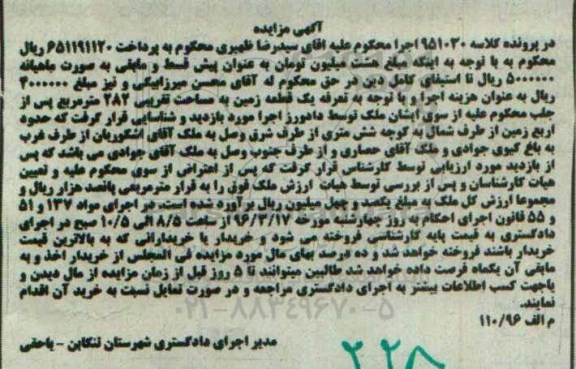 آگهی مزایده
در پرونده کلاسه 951030 اجرا محکوم علیه آقای سیدرضا ظهیری محکوم به پرداخت 651191120 ریال
محکوم به با توجه به اینکه مبلغ هشت میلیون تومان به عنوان پیش قسط و مابقی به صورت ماهیانه
5000000 ریال تا استیفای کامل دین در حق محکوم له آقای محسن میرزابیگی و نیز مبلغ 3000000
ریال به عنوان هزینه اجرا و با توجه به تعرفه یک قطعه زمین به مساحت تقریبی 282 مترمربع پس از
جلب محکوم علیه از سوی ایشان ملک توسط دادورز اجرا مورد بازدید و شناسایی قرار گرفت که حدود
اربع زمین از طرف شمال به کوچه شش متری از طرف شرق وصل به ملک آقای اشکوریان از طرف غرب
به باغ کیوی جوادی و ملک آقای حصاری و از طرف جنوب وصل به ملک آقای جوادی می باشد که پس
از بازدید مورد ارزیابی توسط کارشناس قرار گرفت که پس از اعتراض از سوی محکوم علیه و تعیین
هیات کارشناسان و پس از بررسی توسط هیات ارزش ملک فوق را به قرار مترمربعی پانصد هزار ریال و
مجموعا ارزش کل ملک به مبلغ یکصد و چهل میلیون ریال برآورد شده است. در اجرای مواد 137 و 51
و 55 قانون اجرای احکام به روز چهارشنبه مورخه 96/3/17 از ساعت 8/5 الی 10/5 صبح در اجرای
دادگستری به قیمت پایه کارشناسی فروخته می شود و خریدار یا خریدارانی که به بالاترین قیمت
خریدار باشند فروخته خواهد شد و ده درصد بهای مال مورد مزایده فی المجلس از خریدار اخذ و به
مابقی آن یکماه فرصت داده خواهد شد طالبین میتوانند تا 5 روز قبل از زمان مزایده از مال دیدن و
یاجهت کسب اطلاعات بیشتر به اجرای دادگستری مراجعه و در صورت تمایل نسبت به خرید آن اقدام
نمایند.
م الف 110/96
مدیر اجرای دادگستری شهرستان تنکابن - یاحقی
021-88349670-5
225